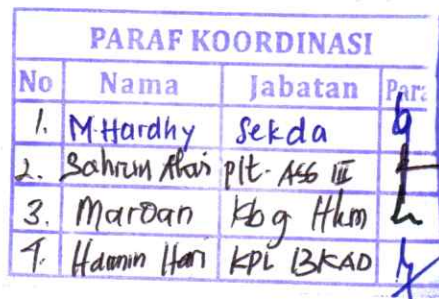 PARAF KOORDINASI
No Nama Jabatan Para
1. M. Hardhy Sekda
2. Sahrun Plt. Ass III
3. Maroan Kbg Hkm
4. Hamin Hari KPL BKAD